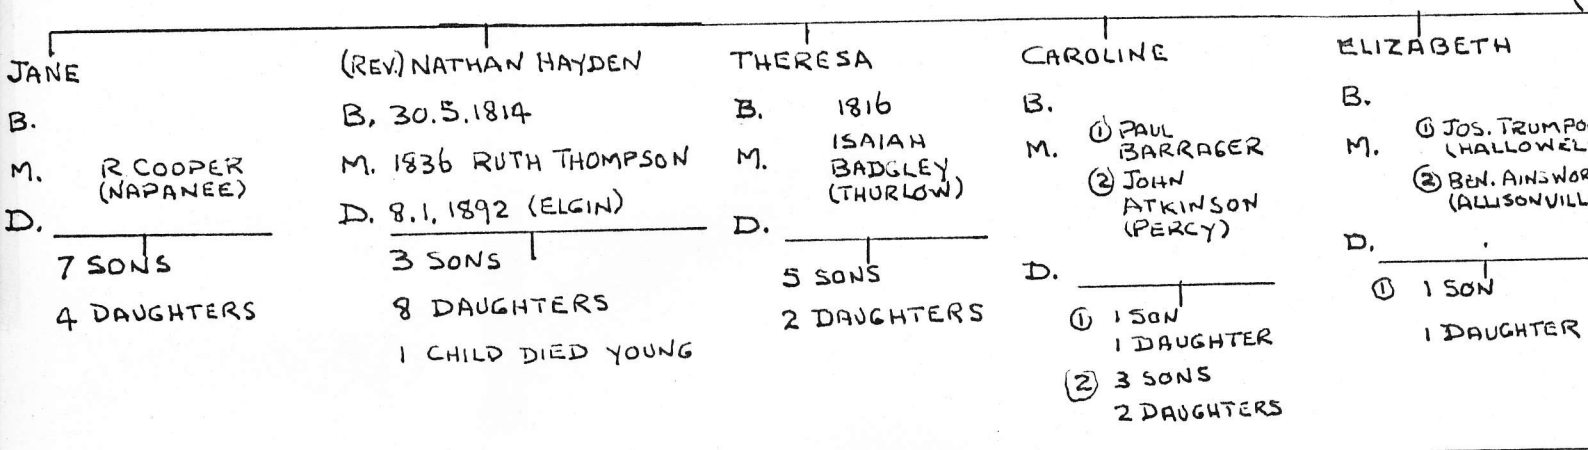 JANE
B.
M. R COOPER
(NAPANEE)
D.
7 SONS
4 DAUGHTERS
(REV.) NATHAN HAYDEN
B. 30.5.1814
M. 1836 RUTH THOMPSON
D. 8.1.1892 (ELGIN)
3 SONS
8 DAUGHTERS
1 CHILD DIED YOUNG
THERESA
B. 1816
M. ISAIAH
BADGLEY
(THURLOW)
D.
5 SONS
2 DAUGHTERS
CAROLINE
B.
M. ① PAUL
BARRAGER
② JOHN
ATKINSON
(PERCY)
D.
① 1 SON
1 DAUGHTER
② 3 SONS
2 DAUGHTERS
ELIZABETH
B.
M. ① JOS. TRUMPO
(HALLOWEL
② BEN. AINSWOR
(ALLISONVILL
D.
① 1 SON
1 DAUGHTER